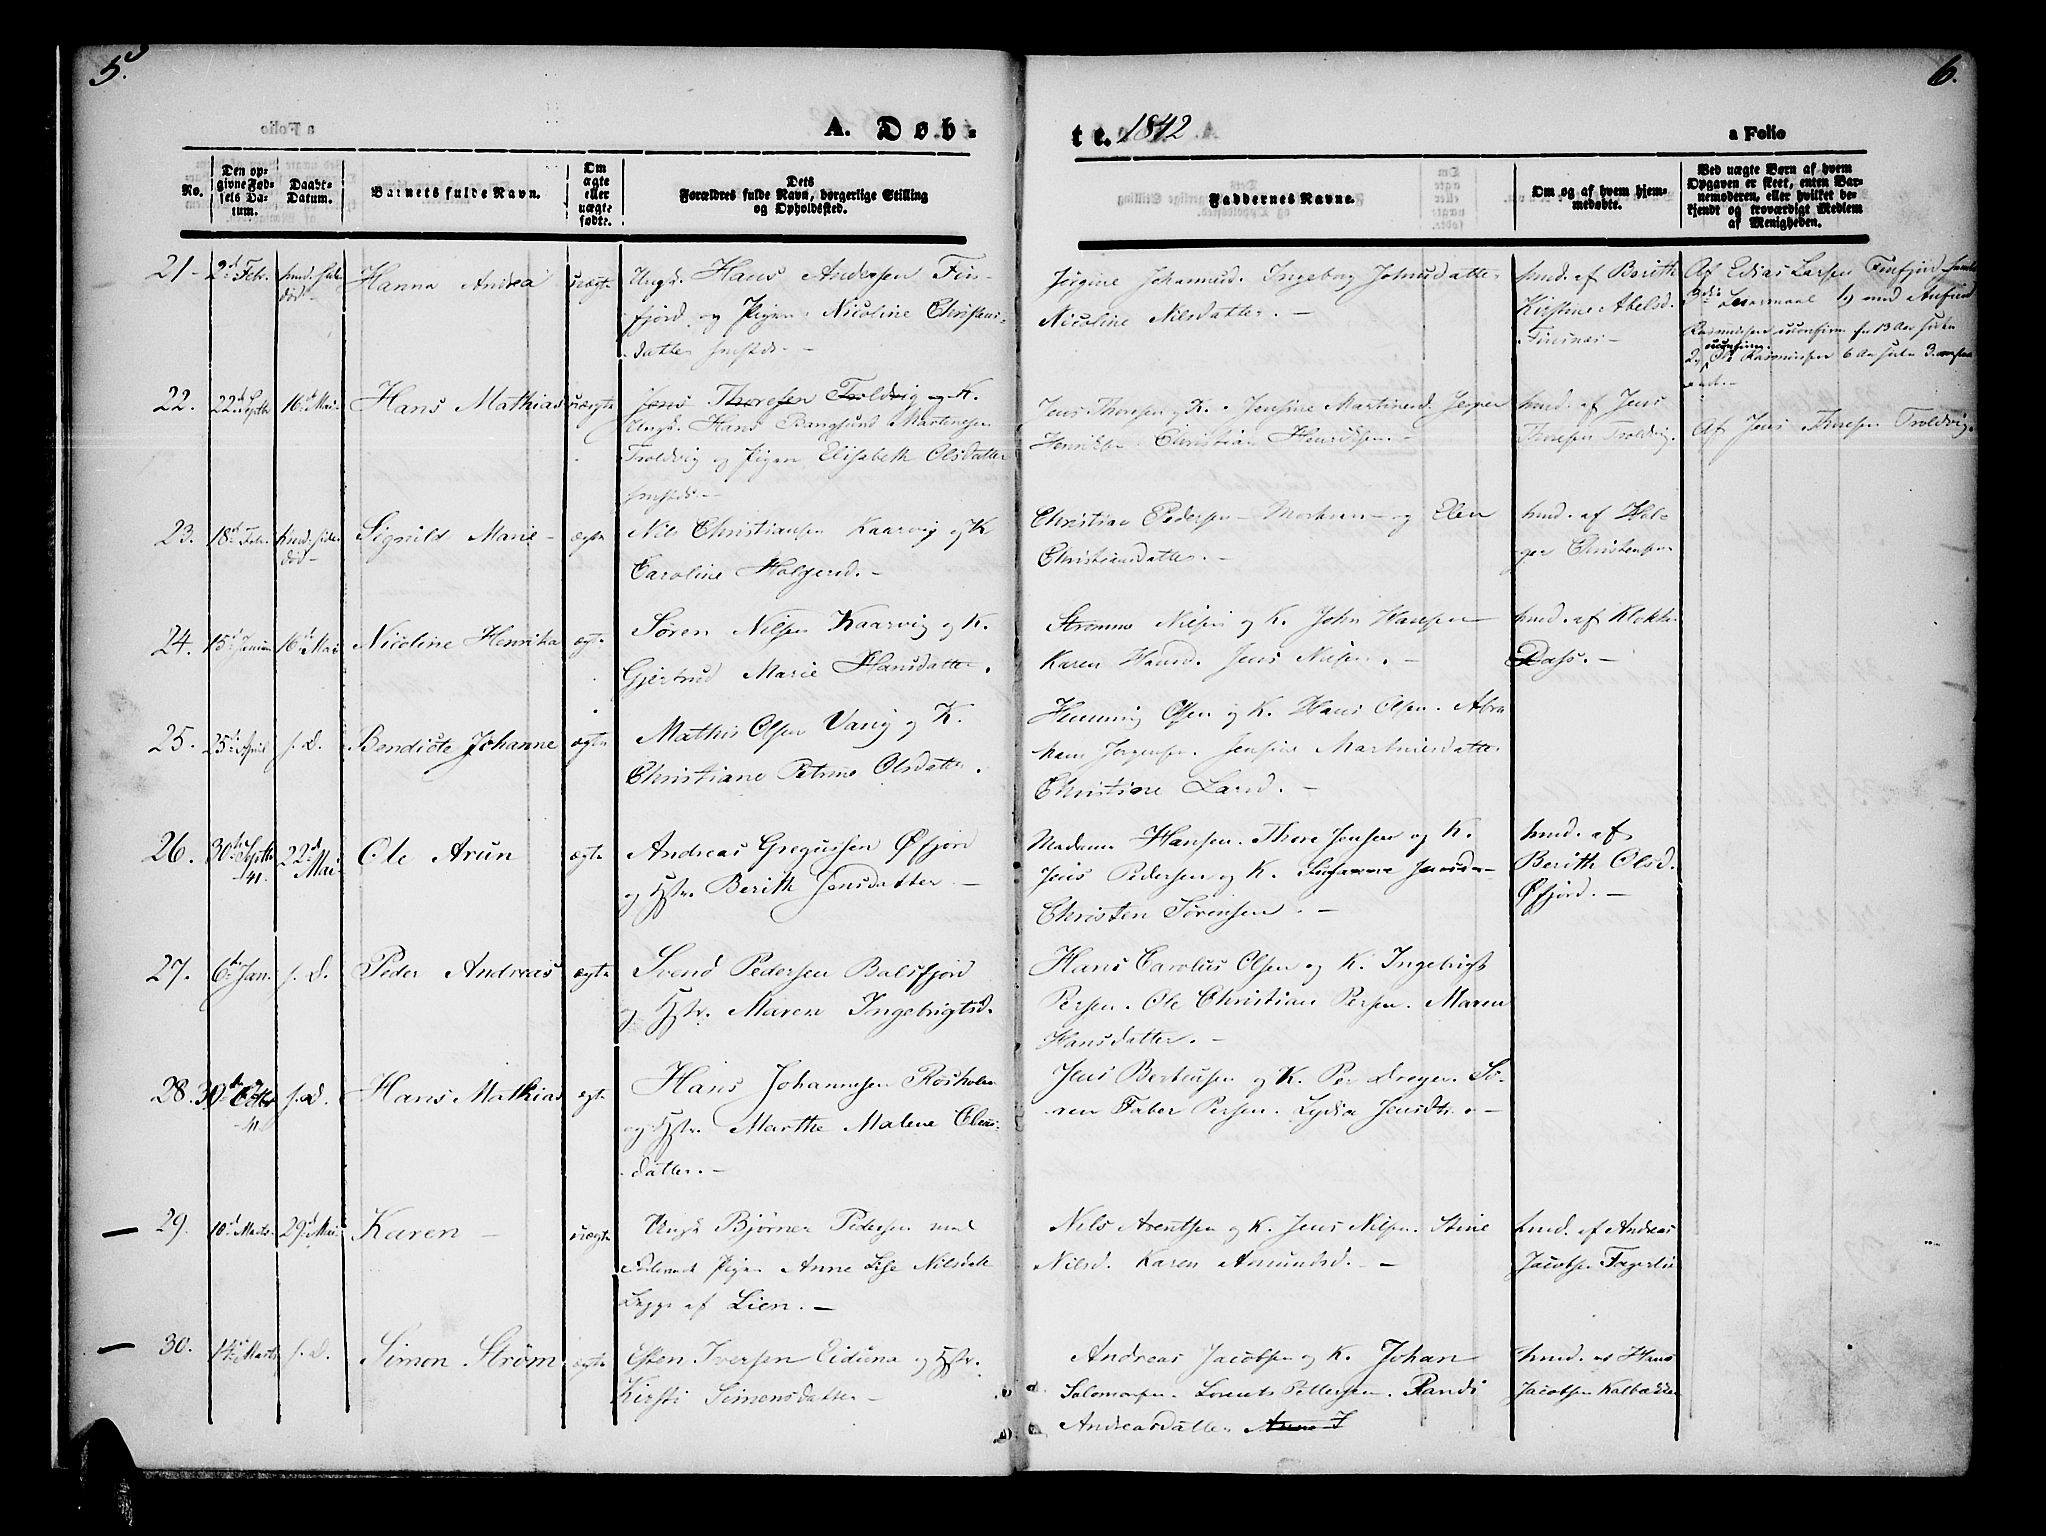 5.
6.
A. Døb-
te. 1842
a Folio
No.
Den op-
givne Fød-
sels Da-
tum.
Daabs-
Datum.
Barnets fulde Navn.
Om
ægte
eller
uægte
fødte.
Dets
Forældres fulde Navn, borgerlige Stilling
og Opholdsted.
Faddernes Navne.
Om og af hvem hjem-
medøbte.
Ved uægte Børn af hvem
Opgaven er skeet, enten Bar-
nemoderen, eller hvilket be-
kjendt og troværdigt Medlem
af Menigheden.
21- 2d Febr. Hanna Andrea uægte
Ungk. Hans Andersen Fin-
fjord og Pigen Nicoline Christens-
datter
Jørgine Johannesd. Ingeborg Johnsdatter
Nicoline Nilsdatter. -
hmd. af Berith
Kirstine Abelsd.
Finsnæs -
Af Edias Larsen Finfjord
22. 16d Mai Hans Mathias uægte
Jens Thoresen Troldvig og K.
Ungk. Hans Bangsund Martinesen
Troldvig og Pigen Elisabeth Olsdatter
Jens Thoresen og K. Jensine Martinesd. Jesper
Henriksen Christian Henriksen -
hmd. af Jens
Thoresen Troldvig.
Af Jens Thoresen Troldvig.
23. 18d Febr. Sigrild Marie - ægte
Nils Christiansen Kaarvig og K
Caroline Holgersd. -
Christian Pedersen - og Elen
Christiansdatter. -
hmd. af Hol-
ger Christensen
24. 15d Januar 16d Mai Nicoline Henrika ægte
Søren Nilsen Kaarvig og K.
Gjertrud Marie Hansdatter.
Nilsen og K. John Hansen
Karen Hansd. Jens Nilsen. -
hmd. af Klokker
Dass. -
25. 25d April s. D. Bendicte Johanne ægte
Mathis Olsen Vang og K.
Christiane Petrine Olsdatter.
Henning Olsen og K. Hans Olsen. Abra
ham Jørgensen. Jensine Martinesdatter
Christine Larsd. -
26. 30th Septbr 41. 22d Mai Ole Arun ægte
Andreas Gregussen Øfjord
og Hstr. Berith Jensdatter -
Madame Hansen. Thore Jensen og K.
Jens Pedersen og K. Susanna Jensd. -
Christen Sørensen. -
hmd. af
Berith Olsd.
Øfjord. -
27. 6te Jan. s. D. Peder Andreas ægte
Svend Pedersen Balsfjord
og Hstr. Maren Ingebrigtsd.
Hans Carolus Olsen og K. Ingebrigt
Persen. Ole Christian Persen. Maren
Hansdatter. -
28. 30te Octbr 41 s. D. Hans Mathias ægte
Hans Johannesen Rosholm
og Hstr. Marthe Malene Olaus-
datter. -
Jens Berteusen og K. Per Dreyer. Sø-
ren Faber Persen. Lydia Jensdtr. -
29. 10d Marts 29d Mai Karen - uægte
Ungk. Bjørner Pedersen med
Pigen Anne Lise Nilsdatt
Lægge af Lien. -
Nils Arentsen og K. Jens Nilsen. Stine
Nilsd. Karen Amundsd. -
hmd. af Andreas
Jacobsen Fagerlie
30. 14de Marts s. D. Simon Strøm ægte
Esten Iversen Eiduna og Hstr.
Kirsti Simensdatter -
Andreas Jacobsen og K. Johan
Salomonsen. Lorents Pettersen. Randi
Andreasdatter
hmd. af Hans
Jacobsen Kalbækken